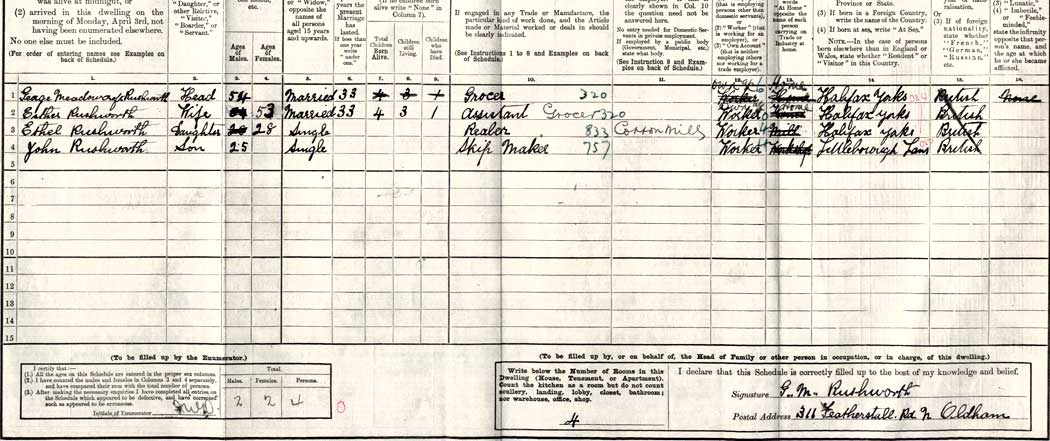 was alive at midnight, or
(2) arrived in this dwelling on the
morning of Monday, April 3rd, not
having been enumerated elsewhere.
No one else must be included.
(For order of entering names see Examples on
back of Schedule.)
"Daughter," or
other Relative,
"Visitor,"
"Boarder," or
"Servant."
Ages
of
Males.
Ages
of
Females.
or "Widow,"
opposite the
names of
all persons
aged 15 years
and upwards.
years the
present
Marriage
has
lasted.
If less than
one year
write
"under
one."
children born
alive write "None" in
Column 7).
Total
Children
Born
Alive.
Children
still
Living.
Children
who
have
Died.
If engaged in any Trade or Manufacture, the
particular kind of work done, and the Article
made or Material worked or dealt in should
be clearly indicated.
(See Instructions 1 to 8 and Examples on back
of Schedule.)
clearly shown in Col. 10
the question need not be
answered here.
No entry needed for Domestic Servants
in private employment.
If employed by a public body
(Government, Municipal, etc.)
state what body.
(See Instruction 9 and Examples
on back of Schedule.)
(that is employing
persons other than
domestic servants),
or
(2) "Worker" (that
is working for an
employer), or
(3) "Own Account"
(that is neither
employing others
nor working for a
trade employer).
"At Home"
opposite the
name of each
person
carrying on
Trade or
Industry at
home.
Province or State.
(3) If born in a Foreign Country,
write the name of the Country.
(4) If born at sea, write "At Sea."
NOTE.—In the case of persons
born elsewhere than in England or
Wales, state whether "Resident" or
"Visitor" in this Country.
(3) If of foreign
nationality,
state whether
"French,"
"German,"
"Russian,"
etc.
(2) "Lunatic,"
(3) "Imbecile,"
or "Feeble-minded,"
state the infirmity
opposite that person's
name, and
the age at which
he or she became
afflicted.
1. 2. 3. 4. 5. 6. 7. 8. 9. 10. 11. 12. 13. 14. 15. 16.
1 George Meadowcroft Rushworth Head 54 Married 33 4 3 1 Grocer 320 Worker Home Halifax Yorks British None
2 Esther Rushworth Wife 53 Married 33 4 3 1 Assistant Grocer 320 Worker Home Halifax Yorks British
3 Ethel Rushworth Daughter 28 Single Realer 833 Cotton Mills Worker Mill Halifax Yorks British
4 John Rushworth Son 25 Single Skip Maker 757 Worker Workshop Littleborough Lans British
5
6
7
8
9
10
11
12
13
14
15
(To be filled up by the Enumerator.)
I certify that:—
(1.) All the ages on this Schedule are entered in the proper sex columns.
(2.) I have counted the males and females in Columns 3 and 4 separately,
and have compared their sum with the total number of persons.
(3.) After making the necessary enquiries I have completed all entries on
the Schedule which appeared to be defective, and have corrected
such as appeared to be erroneous.
Initials of Enumerator
Total.
Males. Females. Persons.
2 2 4
(To be filled up by, or on behalf of, the Head of Family or other person in occupation, or in charge, of this dwelling.)
Write below the Number of Rooms in this
Dwelling (House, Tenement, or Apartment).
Count the kitchen as a room but do not count
scullery, landing, lobby, closet, bathroom;
nor warehouse, office, shop.
4
I declare that this Schedule is correctly filled up to the best of my knowledge and belief.
Signature G. M. Rushworth
Postal Address 311 Featherstall Rd N Oldham